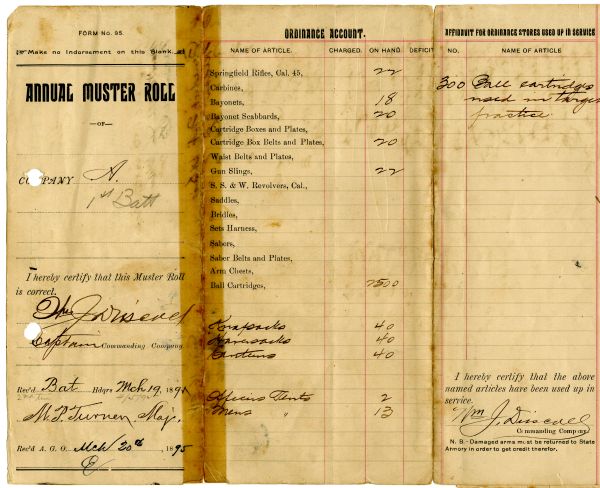 FORM No. 95.
Make no Indorsement on this Blank.
ANNUAL MUSTER ROLL
—OF—
COMPANY A.
1st Batt
I hereby certify that this Muster Roll
is correct.
Wm J Driscoll
Captain Commanding Company.
Rec'd Bat. Hdqrs Mch 19, 1895
M. P. Turner, Maj.
Rec'd A. G. O. Mch 20th 1895
ORDINANCE ACCOUNT.
NAME OF ARTICLE. CHARGED. ON HAND. DEFICIT
Springfield Rifles, Cal. 45, 22
Carbines,
Bayonets, 18
Bayonet Scabbards, 20
Cartridge Boxes and Plates,
Cartridge Box Belts and Plates, 20
Waist Belts and Plates,
Gun Slings, 22
S. S. & W. Revolvers, Cal.,
Saddles,
Bridles,
Sets Harness,
Sabers,
Saber Belts and Plates,
Arm Chests,
Ball Cartridges, 2500
Knapsacks 40
Haversacks 40
Canteens 40
Officers Tents 2
Mens " 13
AFFIDAVIT FOR ORDINANCE STORES USED UP IN SERVICE
NO. NAME OF ARTICLE
300 Ball cartridges
used in target
practice.
I hereby certify that the above
named articles have been used up in
service.
Wm J. Driscoll
Commanding Company.
N. B.-Damaged arms must be returned to State
Armory in order to get credit therefor.